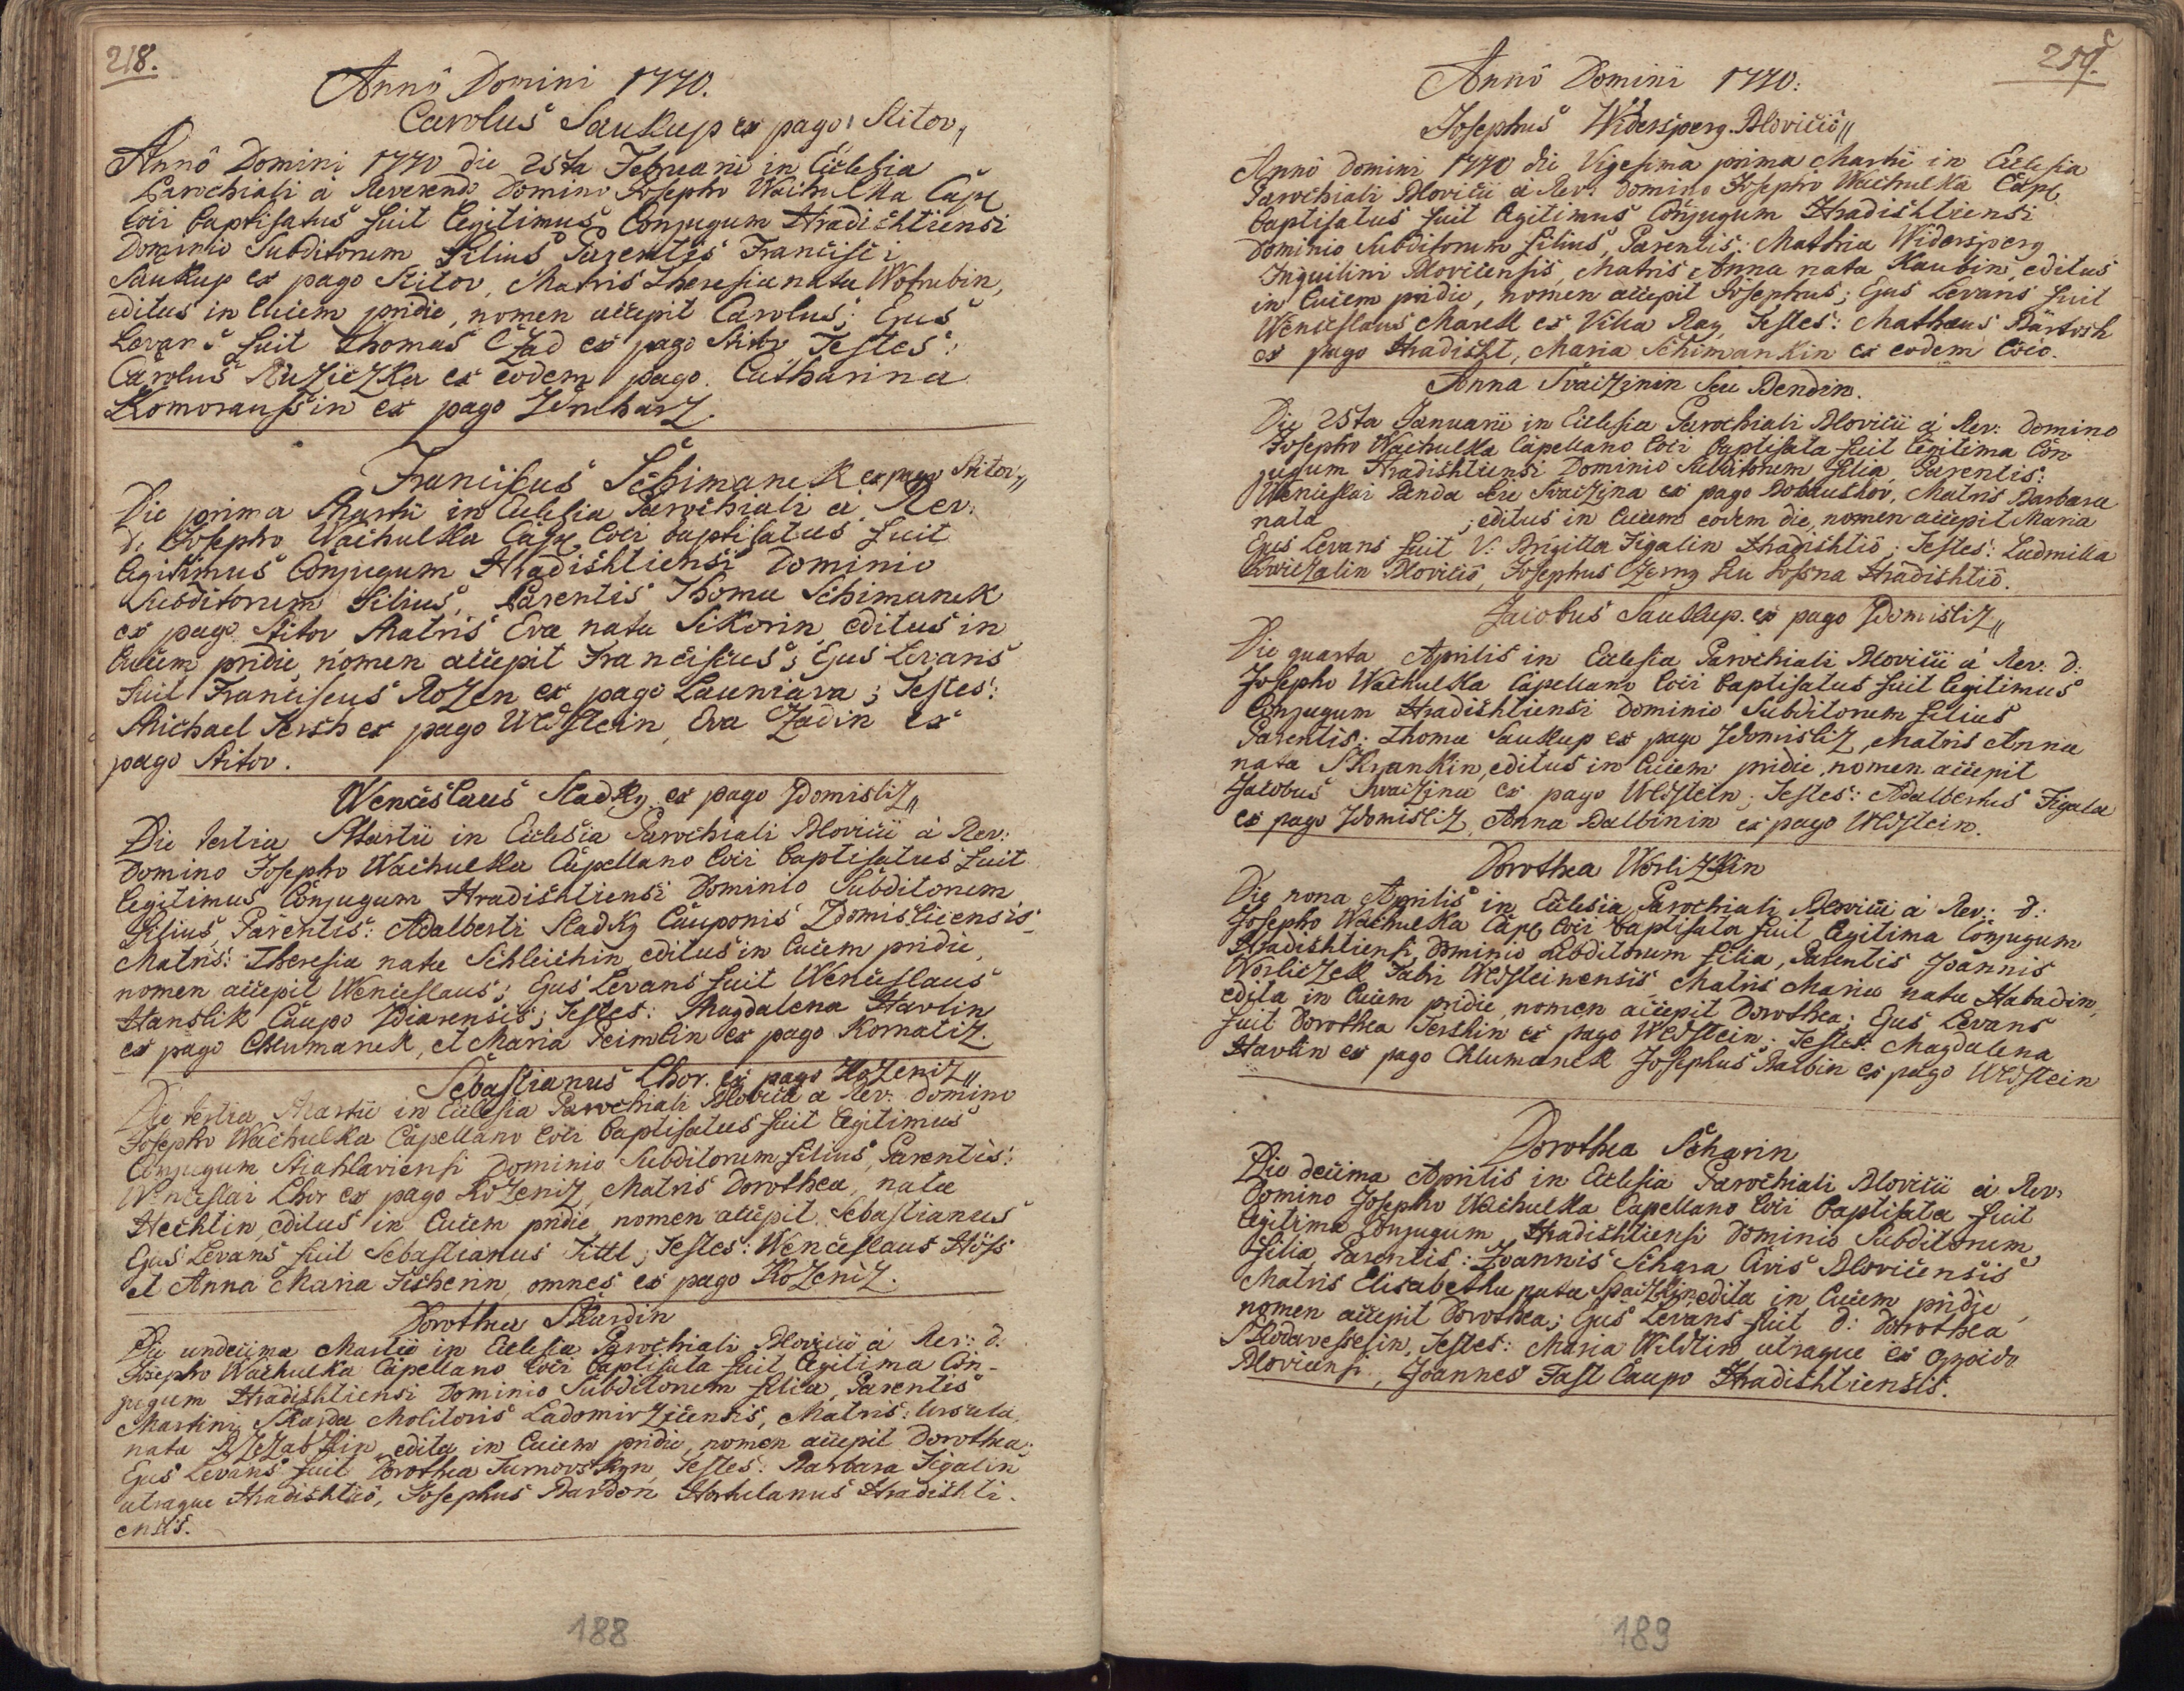 218.
Annô Domini 1770.
Carolus Saukup ex pago Stitov,,
Annô Domini 1770 die 25ta Februarii in Ecclesia
Parochiali à Reverendo Domino Josepho Wachulka Cape
loci baptisatus fuit legitimus Conjugum Hradishtiensi
Dominio Subditorum Filius Parentis Francisci
Saukup ex pago Stitov, Matris Theresia nata Wotrubin,
editus in lucem pridie, nomen accepit Carolus; Ejus
Levans fuit Thomas Czad ex pago Stitov Testes:
Carolus Ruziczka ex eodem pago. Catharina
Komorausin ex pago Zdiharz.
Franciscus Schimanek ex pago Stitov,,
Die prima Martii in Ecclesia Parochiali à Rev:
d: Josepho Wachulka Cape loci baptisatus fuit
legitimus Conjugum Hradishtiensi Dominio
Subditorum Filius, Parentis Thoma Schimanek
ex pago Stitov Matris Eva nata Sikorin editus in
lucem pridie, nomen accepit Franciscus; Ejus Levans
fuit Franciscus Rozen ex pago Launiava; Testes:
Michael Tersh ex pago Wldstein, Eva Czadin ex
pago Stitov.
Wenceslaus Sladky ex pago Zdomisliz,,
Die tertia Martii in Ecclesia Parochiali Blovicii à Rev:
Domino Josepho Wachulka Capellano loci baptisatus fuit
legitimus Conjugum Hradishtiensi Dominio Subditorum
Filius, Parentis: Adalberti Sladky Cauponis Zdomislicensis,
Matris: Theresia nata Schleichin editus in lucem pridie,
nomen accepit Wenceslaus; Ejus Levans fuit Wenceslaus
Hanslik Caupo Zdiarensis; Testes: Magdalena Havlin
ex pago Chlumanek, et Maria Peimlin ex pago Kornatiz.
Sebastianus Chor. ex pago Kozeniz,,
Die tertia Martii in Ecclesia Parochiali Blovicii à Rev: Domino
Josepho Wachulka Capellano loci baptisatus fuit legitimus
Conjugum Stiahlaviensi Dominio Subditorum filius, Parentis:
Wenceslai Chor ex pago Kozeniz, Matris Dorothea, nata
Hechtin, editus in lucem pridie, nomen accepit Sebastianus
Ejus Levans fuit Sebastianus Tittl; Testes: Wenceslaus Höss
et Anna Maria Fisherin, omnes ex pago Kozeniz.
Dorothea Skardin
Die undecima Martii in Ecclesia Parochiali Blovicii à Rev: d:
Josepho Wachulka Capellano loci baptisata fuit legitima Con-
jugum Hradishtiensi Dominio Subditorum filia, Parentis
Martini Skarda Molitoris Ladomirzicensis, Matris: Ursula,
nata edita in lucem pridie, nomen accepit Dorothea;
Ejus Levans fuit Dorothea Turnovskyn, Testes: Barbara Figalin
utraque Hradishtiô, Josephus Bardon Hortulanus Hradishti-
ensis.
188
219.
Annô Domini 1770:
Josephus Widersperg Bloviciô,,
Annô Domini 1770 die Vigesima prima Martii in Ecclesia
Parochiali Blovicii à Rev: Domino Josepho Wachulka Cape,
baptisatus fuit legitimus Conjugum Hradishtiensi
Dominio Subditorum filius, Parentis: Mathia Widersperg
Inquilini Blovicensis, Matris Anna nata Kaubin, editus
in lucem pridie, nomen accepit Josephus; Ejus Levans fuit
Wenceslaus Marek ex Villa Ray, Testes: Mathæus Bärtosh
ex pago Hradisht, Maria Schimankin ex eodem loco.
Anna Svaczinin seu Bendin.
Die 25ta Januarii in Ecclesia Parochiali Blovicii à Rev: Domino
Josepho Wachulka Capellano loci baptisata fuit legitima Con
jugum Hradishtiensi Dominio Subditorum filia, Parentis:
Wenceslai Benda seu Svaczina ex pago , Matris Barbara
nata ; editus in lucem eodem die, nomen accepit Maria
Ejus Levans fuit V: Brigitta Figalin Hradishtiô; Testes: Ludmilla
Bloviciô, Josephus Czerny seu Hradishtiô.
Jacobus Saukup. ex pago Zdomisliz,,
Die quarta Aprilis in Ecclesia Parochiali Blovicii à Rev: d:
Josepho Wachulka Capellano loci baptisatus fuit legitimus
Conjugum Hradishtiensi Dominio Subditorum filius
Parentis: Thoma Saukup ex pago Zdomisliz, Matris Anna
nata Skrankin, editus in lucem pridie, nomen accepit
Jacobus Svaczina ex pago Wldstein; Testes: Adalbertus Figala
ex pago Zdomisliz, Anna Balbinin ex pago Wldstein.
Dorothea Worliczkin
Die nona Aprilis in Ecclesia Parochiali Blovicii à Rev: d:
Josepho Wachulka Cape loci baptisata fuit legitima Conjugum
Hradishtiensi Dominio subditorum filia, Parentis Joannis
Worliczek Fabri Wldsteinensis, Matris Maria nata Habadin,
edita in lucem pridie, nomen accepit Dorothea; Ejus Levans
fuit Dorothea Tershin ex pago Wldstein; Testes: Magdalena
Havlin ex pago Chlumanek Josephus Balbin ex pago Wldstein
Dorothea Scharin
Die decima Aprilis in Ecclesia Parochiali Blovicii à Rev:
Domino Josepho Wachulka Capellano loci baptisata fuit
legitima Conjugum Hradishtiensi Dominio Subditorum,
Filia Parentis: Joannis Schara Civis Blovicensis
Matris Elisabetha nata edita in lucem pridie,
nomen accepit Dorothea; Ejus Levans fuit d: Dorothea
Testes: Maria Wildtin utraque ex Oppido
Blovicensi, Joannes Fast Caupo Hradishtiensis.
189